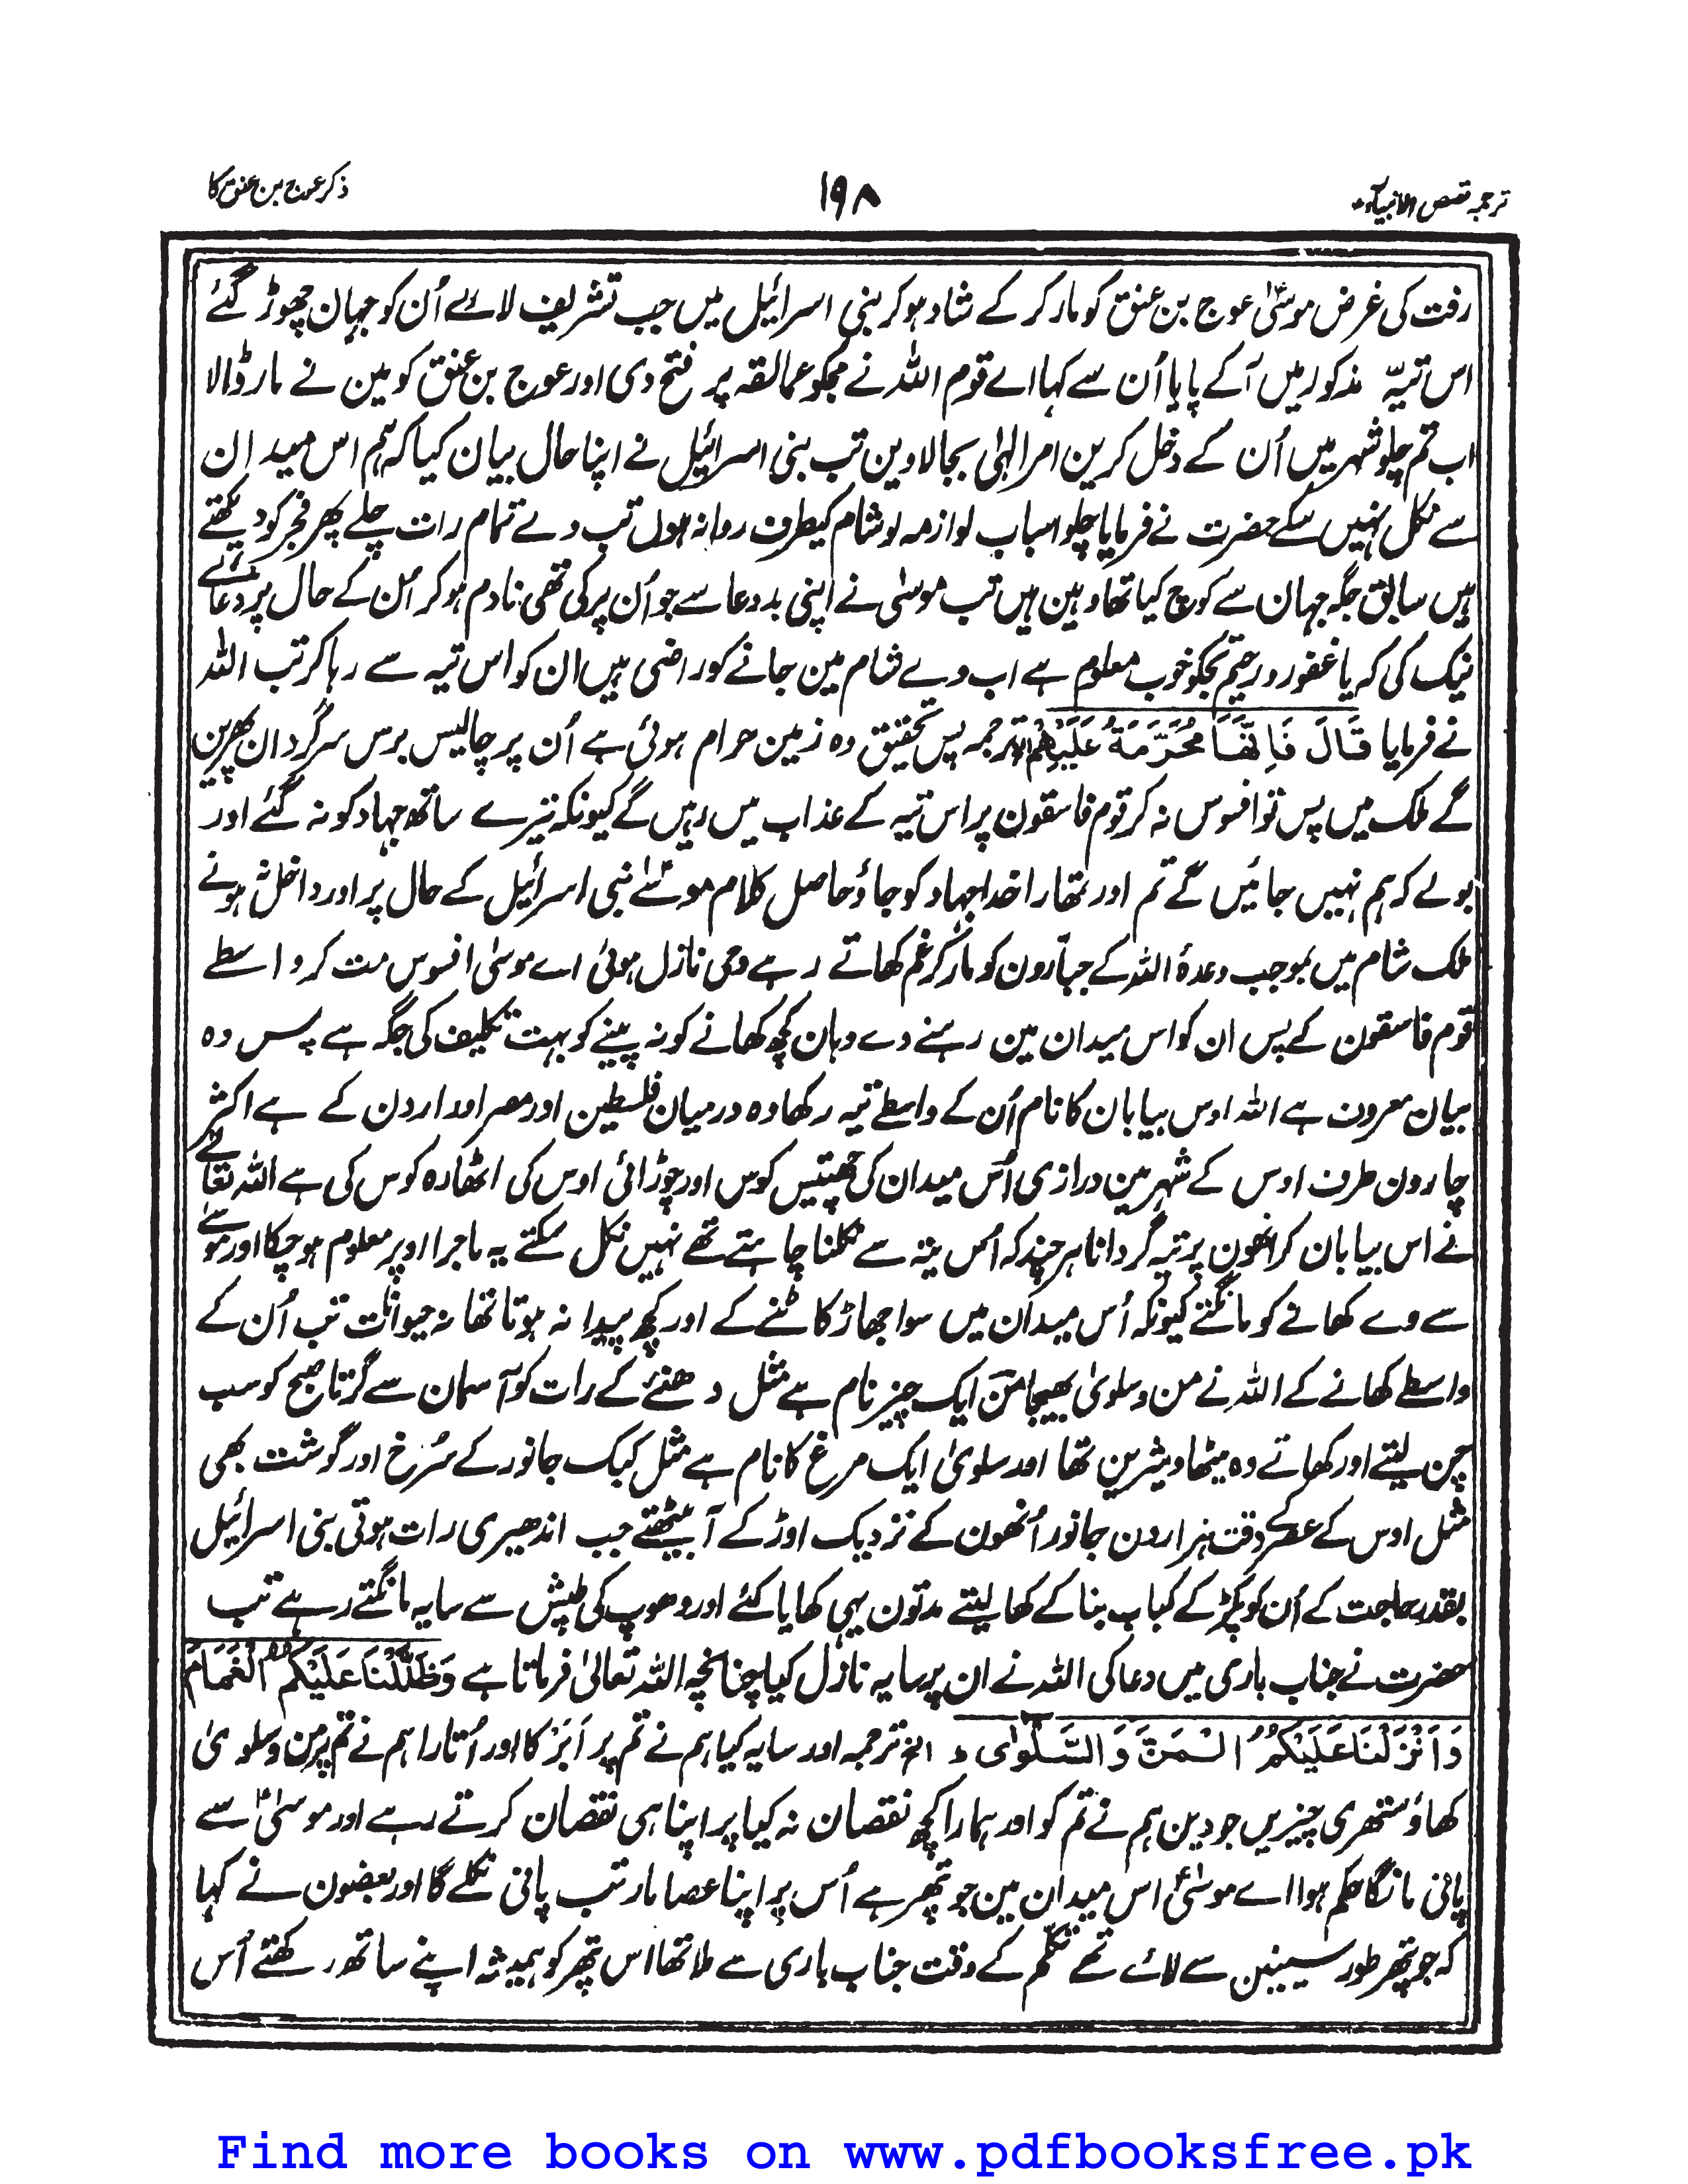 ترجمہ قصص الانبیآء
۱۹۸
ذکر عوج بن عنق کا
رفت کی غرض موسیٰؑ عوج بن عنق کو مار کر کے شاد ہو کر بنی اسرائیل میں جب تشریف لائے اُن کو جہان چھوڑ گئے
اس تیہّ مذکور میں آ کے پایا اُن سے کہا اے قوم اللہ نے مجکو عمالقہ پر فتح دی اور عوج بن عنق کو مین نے مار ڈالا
اب تم چلو شہر میں اُن کے دخل کرین امر الہٰی بجالاوین تب بنی اسرائیل نے اپنا حال بیان کیا کہ ہم اس میدان
سے نکل نہیں سکے حضرت نے فرمایا چلو اسباب لوازمہ لو شام کیطرف روانہ ہوں تب وے تمام رات چلے پھر فجر کو دیکھتے
ہیں سابق جگہ جہان سے کوچ کیا تھا وہین ہیں تب موسٰی نے اپنی بددعا سے جو اُن پر کی تھی نادم ہو کر اُن کے حال پر دعائے
نیک کی کہ یا غفور و رحیم تجکو خوب معلوم ہے اب وے شام مین جانے کو راضی ہیں ان کو اس تیہ سے رہا کر تب اللہ
نے فرمایا قَالَ فَاِنَّهَا مُحَرَّمَةٌ عَلَيْهِمْ الخ ترجمہ پس تحقیق وہ زمین حرام ہوئی ہے اُن پر چالیس برس سرگردان پھرین
گے ملک میں پس تو افسوس نہ کر قوم فاسقون پر اس تیہ کے عذاب میں رہیں گے کیونکہ تیرے ساتھ جہاد کو نہ گئے اور
بولے کہ ہم نہیں جائیں گے تم اور تمھارا خدا جہاد کو جاؤ حاصل کلام موسےٰؑ بنی اسرائیل کے حال پر اور داخل نہ ہونے
ملک شام میں بموجب وعدۂ اللہ کے جبّارون کو مار کر غم کھاتے رہے وحی نازل ہوئی اے موسٰی افسوس مت کر واسطے
قوم فاسقون کے پس ان کو اس میدان مین رہنے دے وہان کچھ کھانے کو نہ پینے کو بہت تکلیف کی جگہ ہے پس وہ
بیان معروف ہے اللہ اوس بیابان کا نام اُن کے واسطے تیہ رکھا وہ درمیان فلسطین اور مصر اور اردن کے ہے اکثر
چارون طرف اوس کے شہر مین درازی اُس میدان کی چھتیس کوس اور چوڑائی اوس کی اٹھارہ کوس کی ہے اللہ تعالےٰ
نے اس بیابان کر انھون پر تیہ گردانا ہر چند کہ اُس تیہ سے نکلنا چاہتے تھے نہیں نکل سکتے یہ ماجرا اوپر معلوم ہو چکا اور موسےٰ
سے وے کھانے کو مانگتے کیونکہ اُس میدان میں سوا جھاڑ کاٹنے کے اور کچھ پیدا نہ ہوتا تھا نہ حیوانات تب اُن کے
واسطے کھانے کے اللہ نے من و سلویٰ بھیجا منّ ایک چیز نام ہے مثل دھنئے کے رات کو آسمان سے گرتا صبح کو سب
چن لیتے اور کھاتے وہ میٹھا و شیرین تھا اور سلویٰ ایک مرغ کا نام ہے مثل کبک جانور کے سُرخ اور گوشت بھی
مثل اوس کے عصر کے وقت ہزارون جانور اُنھون کے نزدیک اوڑ کے آ بیٹھتے جب اندھیری رات ہوتی بنی اسرائیل
بقدر حاجت کے اُن کو پکڑ کے کباب بنا کے کھا لیتے مدتون یہی کھایا کئے اور دھوپ کی طپش سے سایہ مانگتے رہے تب
حضرت نے جناب باری میں دعا کی اللہ نے ان پر سایہ نازل کیا چنانچہ اللہ تعالیٰ فرماتا ہے وَظَلَّلْنَا عَلَيْكُمُ الْغَمَامَ
وَاَنْزَلْنَا عَلَيْكُمُ الْمَنَّ وَالسَّلْوٰی ط الخ ترجمہ اور سایہ کیا ہم نے تم پر اَبَرْ کا اور اُتارا ہم نے تم پر من و سلویٰ
کھاؤ ستھری چیزیں جو دین ہم نے تم کو اور ہمارا کچھ نقصان نہ کیا پر اپنا ہی نقصان کرتے رہے اور موسیٰؑ سے
پانی مانگا حکم ہوا اے موسٰیؑ اس میدان مین جو پتھر ہے اُس پر اپنا عصا مار تب پانی نکلے گا اور بعضون نے کہا
کہ جو پتھر طور سینین سے لائے تھے تکلّم کے وقت جناب باری سے ملا تھا اس پتھر کو ہمیشہ اپنے ساتھ رکھتے اُس
Find more books on www.pdfbooksfree.pk